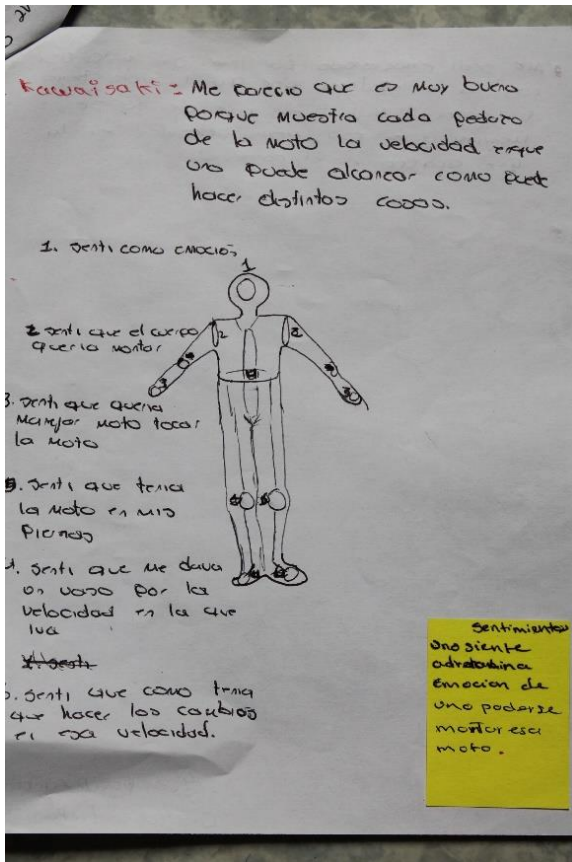 Kawaisaki: Me parecio que es muy bueno
porque muestra cada pedazo
de la moto la velocidad enque
uno puede alcanzar como puede
hacer distintos cosas.
1. senti como emoción
1
2 senti que el cuerpo
queria montar
2
2
3. senti que queria
manejar moto tocar
la moto
3. senti que tenia
la moto en mis
piernas
4. senti que me dava
un vaso por la
velocidad en la que
iva
senti
5. senti que como tenia
que hacer los cambios
en esa velocidad.
Sentimientos
Uno siente
adrenalina
Emocion de
uno poderse
montar esa
moto.